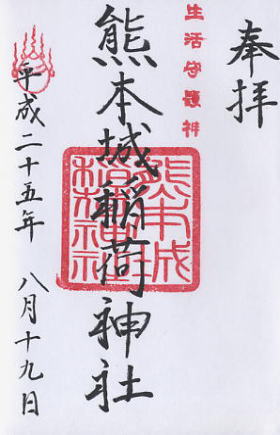 奉拝
生活守護神
熊本城稲荷神社
熊本城稲荷神社
平成二十五年 八月十九日